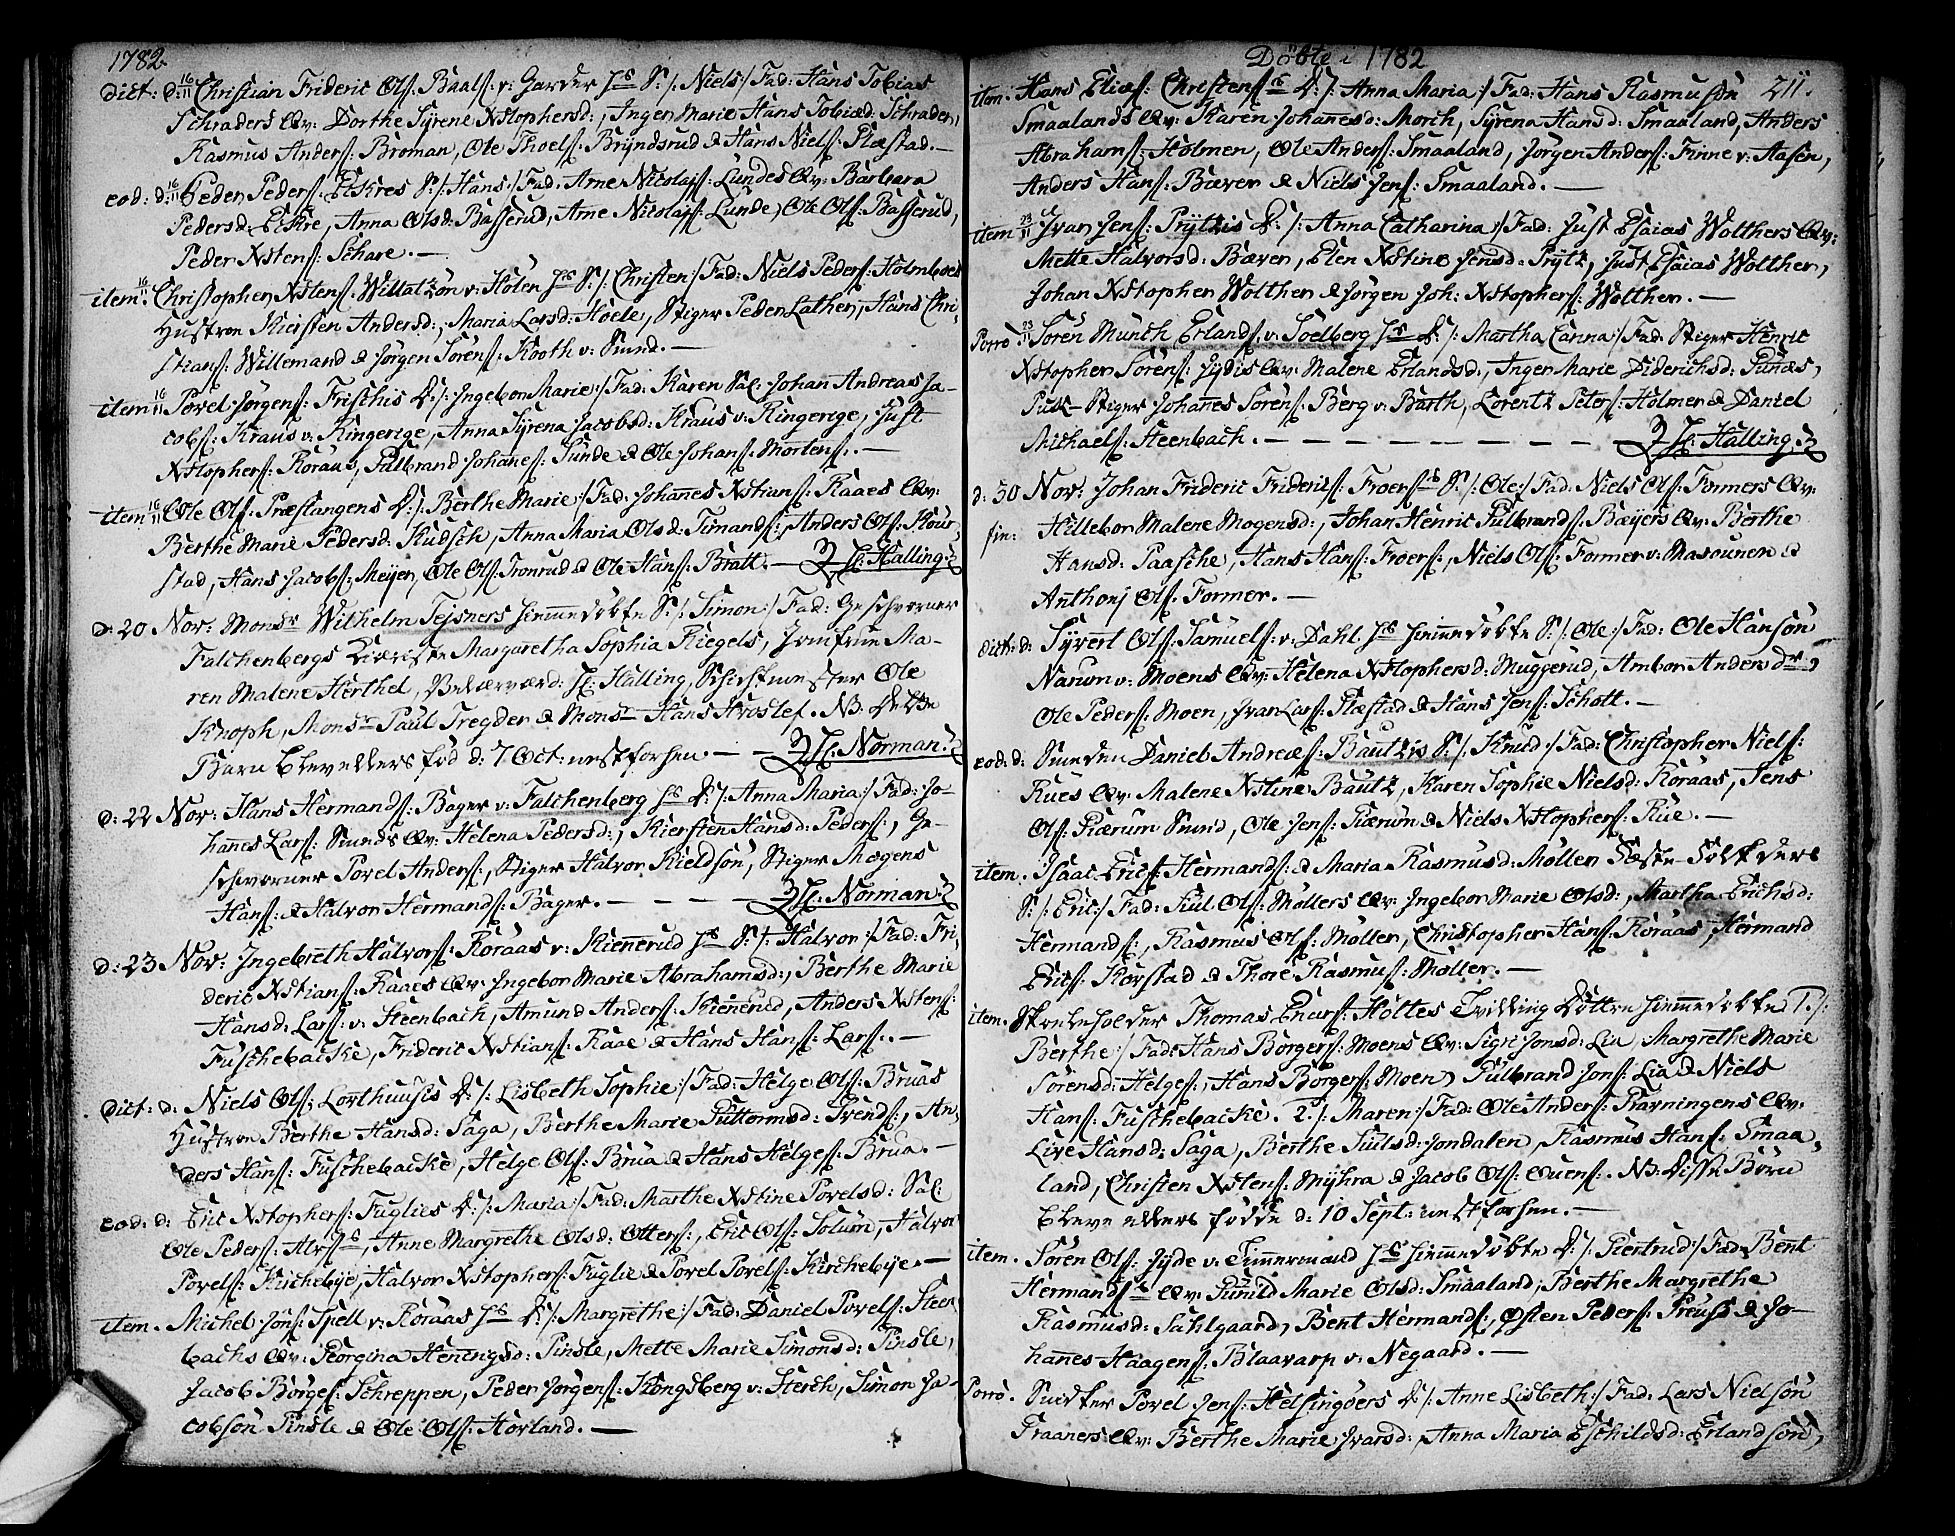 1782.
dict: d: 16/11 Christian Frideric Ols: Baals: v: Garder Js S: /: Niels :/ Fad: Hans Tobias
Schraders Qv: Dorthe Syrene Xstophersd:, Inger Marie Hans Tobiæd: Schrader,
Rasmus Anders: Broman, Ole Thoels: Bryndsrud & Hans Niels: Flæstad. —
eod: d: 16/11 Peder Peders: Eckres S: /: Hans :/ Fad: Arne Nicolajs: Lundes Qv: Barbara
Pedersd: Eckre, Anna Olsd: Basserud, Arne Nicolajs: Lunde, Ole Ols: Basserud,
Peder Xstens: Schare. —
item: 16/11 Christopher Xstens: Willatzøn v: Holen Js S: /: Christen :/ Fad: Niels Peders: Holmboes
Hustroe Kiersten Andersd:, Maria Larsd: Hoele, Stiger Peder Lather, Hans Chri-
stians: Willemand & Jørgen Sørens: Kooth v: Smed. —
item 16/11 Povel Jørgens: Frischis D: /: Ingebor Marie :/ Fad: Karen Sal: Johan Andreas Ja-
cobs: Kraus v: Ringerige, Anna Syrena Jacobsd: Kraus v: Ringerige, Just
Xstophers: Roraas, Gulbrand Johanes: Lunde & Ole Johans: Mortens:. —
item 16/11 Ole Ols: Præstangens D: /: Berthe Marie :/ Fad: Johanes Xstians: Raaes Qv:
Berthe Marie Pedersd: Kudsch, Anna Maria Olsd: Timands:, Anders Ols: Kour-
stad, Hans Jacobs: Meyer, Ole Ols: Tronrud & Ole Hans: Bratt. — H: Halling.
d: 20 Nov: Monsr Wilhelm Tejsners hiemmedøbte S: /: Simon :/ Fad: Geschworner
Falchenbergs Kiæriste Margaretha Sophia Riegels, Jomfrue Ma-
ren Malene Herthel, Velærværd: H: Halling, Schichtmester Ole
Knoph, Monsr Paul Tregder & Monsr Hans Hvoslef. NB: Dette
Barn blev ellers fød d: 7 Oct: nestforhen. — — H: Norman.
d: 22 Nov: Hans Hermands: Bager v: Falchenberg Js D: /: Anna Maria :/ Fad: Jo-
hanes Lars: Smeds Qv: Helena Pedersd:, Kiersten Hansd: Peders:, Ge-
schworner Povel Anders:, Stiger Halvor Kieldsøn, Stiger Mogens
Hans: & Halvor Hermands: Bager. — — — — H: Norman
d: 23 Nov: Ingebreth Halvors: Roraas v: Kiennerud Js S: /: Halvor :/ Fad: Fri-
deric Xstians: Raaes Qv: Ingebor Marie Abrahamsd:, Berthe Marie
Hansd: Lars: v: Steenbach, Amund Anders: Kienerud, Anders Xstens:
Fuschebacke, Frideric Xstians: Raae & Hans Hans: Lars:. —
dict: d: Niels Ols: Lorthuusis D: /: Lisbeth Sophie :/ Fad: Helge Ols: Bruas
Hustroe Berthe Hansd: Saga, Berthe Marie Guttormsd: Svends:, An-
ders Hans: Fuschebacke, Helge Ols: Brua & Hans Helges: Brua. —
eod: d: Eric Xstophers: Fuglies D: /: Maria :/ Fad: Marthe Xstine Povelsd: Sal:
Ole Peders: Alvs:, Anne Margrethe Olsd: Otters:, Eric Ols: Solum, Halvor
Povels: Kircheby, Halvor Xstophers: Fuglie & Povel Povels: Kirchebye. —
item. Michel Jons: Spell v: Roraas Js D: /: Margrethe :/ Fad: Daniel Povels: Steen-
bachs Qv: Georgina Heningsd: Pinsle, Mette Marie Simonsd: Pinsle,
Jacob Børges: Schreppen, Peder Jørgens: Kongsberg v: Sterch, Simon Ja-
cobsøn Pinsle & Ole Ols: Horland. —
Døbte i 1782
211.
item. Hans Eliæs: Christens D: /: Anna Maria :/ Fad: Hans Rasmusøn
Smaalands Qv: Karen Johanesd: Morch, Syrena Hansd: Smaaland, Anders
Abrahams: Holmen, Ole Anders: Smaaland, Jørgen Anders: Finne v: Aasen,
Anders Hans: Bæver & Niels Jens: Smaaland. —
item 23/11 Ivar Jens: Prytzis D: /: Anna Catharina :/ Fad: Just Esaias Wolthers Qv:
Mette Halvorsd: Bæver, Elen Xstine Jensd: Prytz, Just Esaias Wolther,
Johan Xstopher Wolther & Jørgen Joh: Xstophers: Wolther. —
Porro 23/11 Søren Munth Erlands: v: Soelberg Js D: /: Martha Canna :/ Fad: Stiger Henric
Xstopher Sørens: Jydis Qv: Malene Erlandsd:, Inger Marie Diderichsd: Punæs,
Puk-Stiger Johanes Sørens: Berg v: Barth, Lorentz Peters: Holmer & Daniel
Michaels: Steenbach. — — — — — — — — H: Halling
d: 30 Nov: Johan Frideric Friderics: Froers S: /: Ole :/ Fad: Niels Ols: Formers Qv:
fin: Hillebor Malene Mogensd:, Johan Henric Gulbrands: Bæyers Qv: Berthe
Hansd: Paasche, Hans Hans: Froers:, Niels Ols: Former v: Masouner &
Anthonj Ols: Former. —
dict: d: Syvert Ols: Samuels: v: Dahl Js hiemmedøbte S: /: Ole :/ Fad: Ole Hansøn
Narum v: Moens Qv: Helena Xstophersd: Muggerud, Ambor Andersdr,
Ole Peders: Moen, Ivar Lars: Flæstad & Hans Jens: Schott. —
eod: d: Smeden Daniel Andreæs: Bautzis S: /: Knud :/ Fad: Christopher Niels:
Rues Qv: Malene Xstine Bautz, Karen Sophie Nielsd: Roraas, Jens
Ols: Giærum Smed, Ole Jens: Giærum & Niels Xstophers: Rue. —
item. Isaac Erics: Hermands: & Maria Rasmusd: Møller Fæste-Folckders
S: /: Eric :/ Fad: Juul Ols: Møllers Qv: Ingebor Marie Olsd:, Martha Erichsd:
Hermands:, Rasmus Ols: Møller, Christopher Hans: Roraas, Hermand
Erics: Korstad & Thore Rasmus: Møller. —
item. Skoeleholder Thomas Enars: Holtes Tvilling Døttre hiemmedøbte 1. /:
Berthe :/ Fad: Hans Børgers: Moens Qv: Sigri Jonsd: Lia, Margrethe Marie
Sørensd: Helges:, Hans Børgers: Moen, Gulbrand Jons: Lia & Niels
Hans: Fuschebacke. 2. /: Maren :/ Fad: Ole Anders: Gravningens Qv:
Live Hansd: Saga, Berthe Juulsd: Jondalen, Rasmus Hans: Smaa-
land, Christen Xstens: Myhra & Jacob Ols: Ouens:. NB: Disse Børn
bleve ellers fødde d: 10 Sept: nestforhen. —
item. Søren Ols: Jyde v: Timmermand Js hiemmedøbte D: /: Giertrud :/ Fad: Bent
Hermands: Qv: Gunild Marie Olsd: Smaaland, Berthe Margrethe
Rasmusd: Sahlgaard, Bent Hermands:, Østen Peders: Preuss & Jo-
hannes Haagens: Blaavarp v: Negaard. —
Porro. Snidker Povel Jens: Helsingøers D: /: Anne Lisbeth :/ Fad: Lars Nielsøn
Graaners Qv: Berthe Marie Ivarsd:, Anna Maria Eschildsd: Erlandsøn,